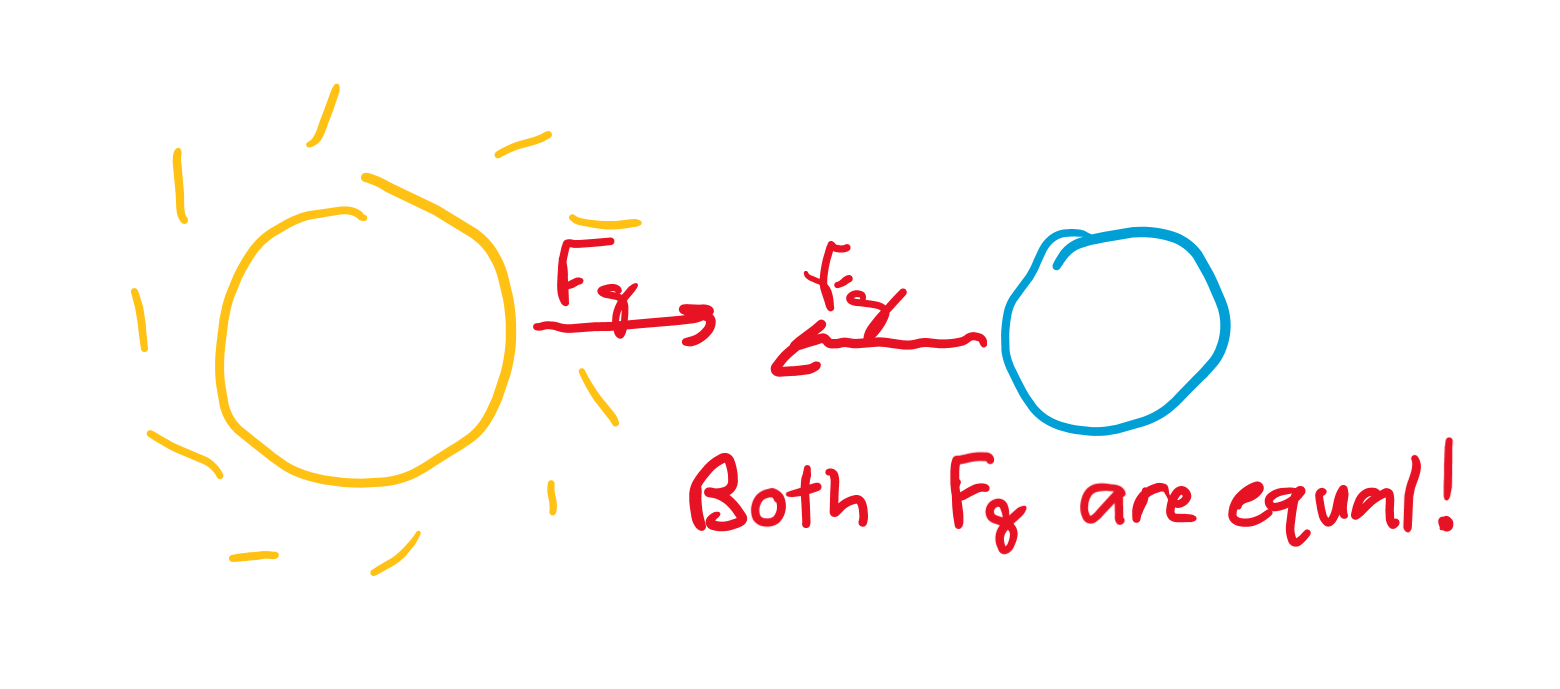 Fg Fg
Both Fg are equal!